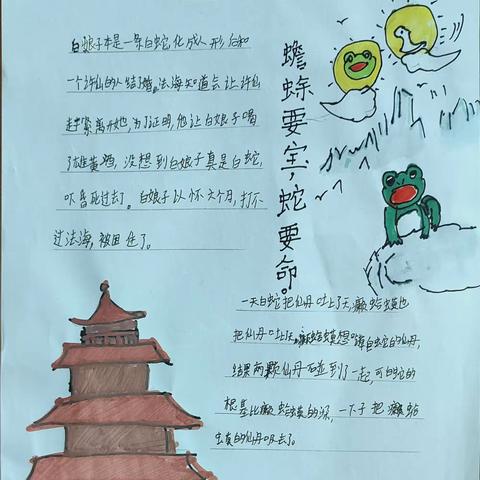 白娘子本是一条白蛇化成人形后和
一个许仙的人结婚。法海知道会让许仙
赶紧离开她,为了证明,他让白娘子喝
了雄黄酒,没想到白娘子真是白蛇,
吓昏死过去了。白娘子以怀六个月,打不
过法海,被困住了。
蟾蜍要宝,蛇要命。
一天白蛇把仙丹吐上了天,癞蛤蟆也
把仙丹吐上天,癞蛤蟆想 白蛇的仙丹,
结果两颗仙丹 碰到了一起,可白蛇的
根基比癞蛤蟆的深,一下子把癞蛤
蟆的仙丹吸去了。